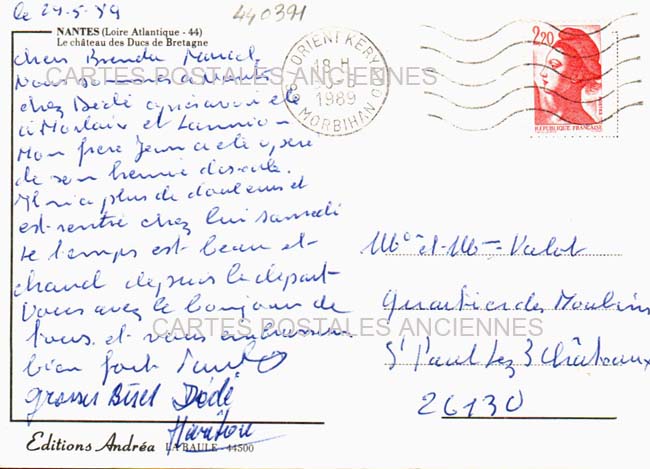 le 29-5-89
440391
NANTES (Loire Atlantique - 44)
Le château des Ducs de Bretagne
Chers Marcel
Nous sommes à Nantes
chez Dédé après avoir été
à Morlaix et Lannion
Mon frère Jean a été opéré
de son hernie discale.
Il n'a plus de douleurs et
est rentré chez lui samedi
Le temps est beau et
chaud depuis le départ
Vous avez le bonjour de
tous et vous embrassons
bien fort
grosses Bises Dédé
Editions Andréa LA BAULE - 44500
LORIENT KERY
18 H
1989
MORBIHAN
2,20
REPUBLIQUE FRANÇAISE
Mr et Mme Valot
Quartier des Moulins
St Paul Lez 3 Châteaux
26130
CARTES POSTALES ANCIENNES
CARTES POSTALES ANCIENNES